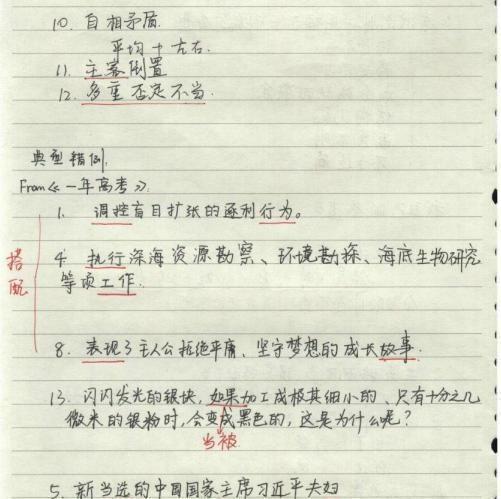 10. 自相矛盾.
平均 + 左右.
11. 主客倒置
12. 多重否定不当.
典型错例.
From《一年高考》.
1. 调控盲目扩张的逐利行为。
搭配
4 执行深海资源勘察、环境勘探、海底生物研究
等项工作.
8. 表现了主人公拒绝平庸、坚守梦想的成长故事.
13. 闪闪发光的银块,如果加工成极其细小的、只有十分之几
微米的银粉时,会变成黑色的,这是为什么呢?
当被
5. 新当选的中国国家主席习近平夫妇